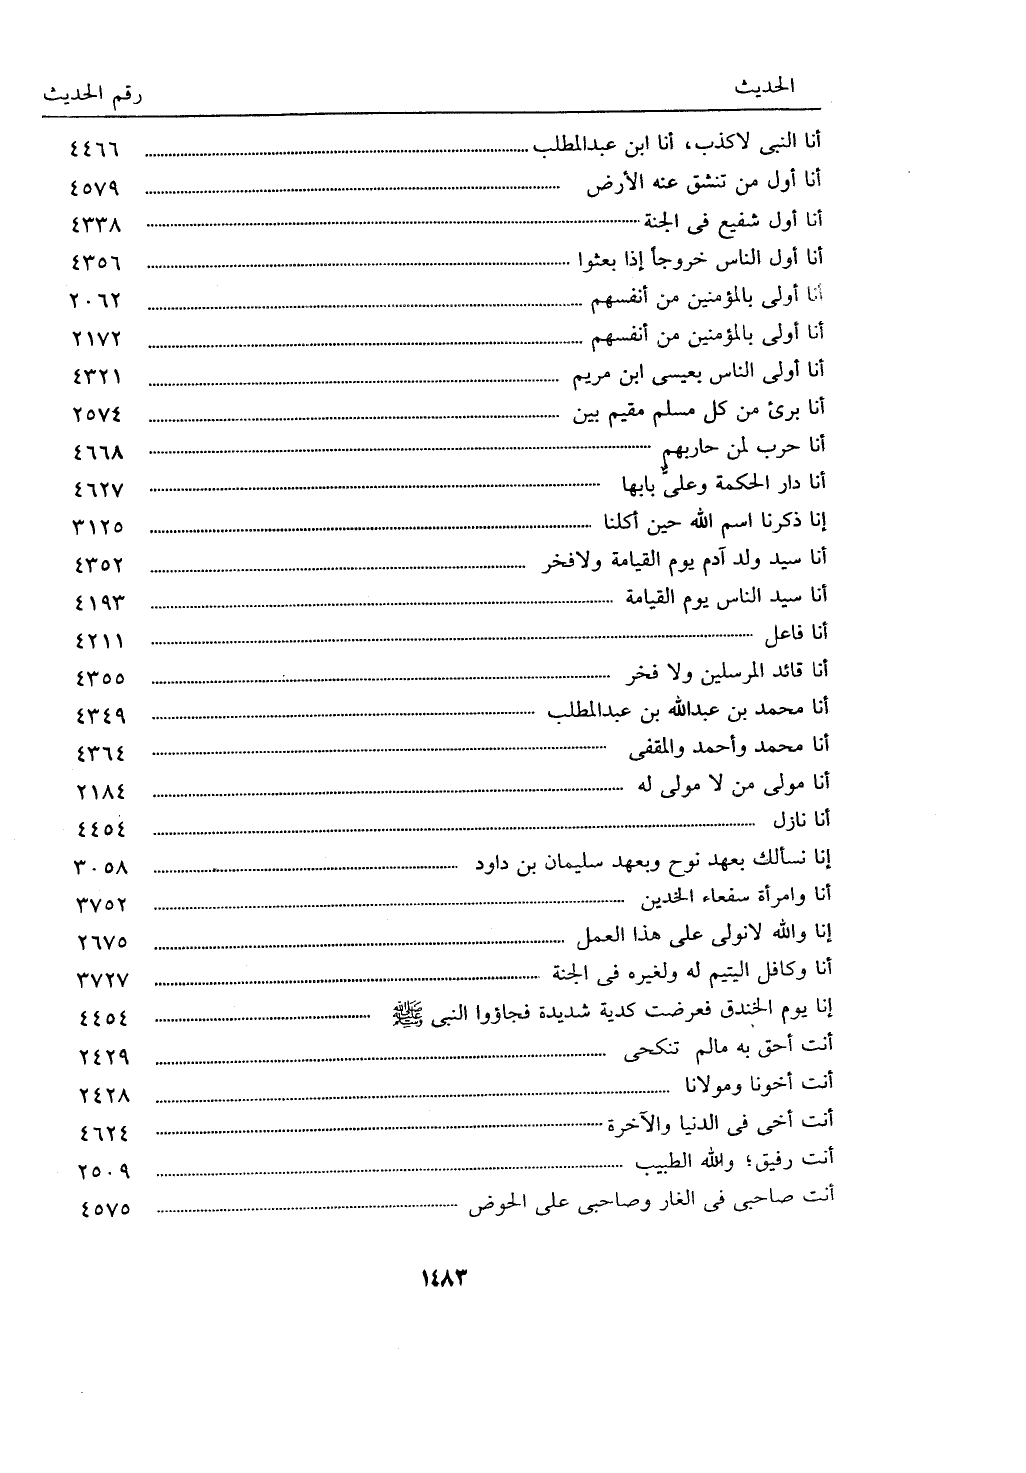 الحديث رقم الحديث
أنا النبى لاكذب، أنا ابن عبدالمطلب ........ ٤٤٦٦
أنا أول من تنشق عنه الأرض ........ ٤٥٧٩
أنا أول شفيع فى الجنة ........ ٤٣٣٨
أنا أول الناس خروجاً إذا بعثوا ........ ٤٣٥٦
أنا أولى بالمؤمنين من أنفسهم ........ ٢٠٦٢
أنا أولى بالمؤمنين من أنفسهم ........ ٢١٧٢
أنا أولى الناس بعيسى ابن مريم ........ ٤٣٢١
أنا برئ من كل مسلم مقيم بين ........ ٢٥٧٤
أنا حرب لمن حاربهم ........ ٤٦٦٨
أنا دار الحكمة وعلىٌّ بابها ........ ٤٦٢٧
إنا ذكرنا اسم الله حين أكلنا ........ ٣١٢٥
أنا سيد ولد آدم يوم القيامة ولافخر ........ ٤٣٥٢
أنا سيد الناس يوم القيامة ........ ٤١٩٣
أنا فاعل ........ ٤٢١١
أنا قائد المرسلين ولا فخر ........ ٤٣٥٥
أنا محمد بن عبدالله بن عبدالمطلب ........ ٤٣٤٩
أنا محمد وأحمد والمقفى ........ ٤٣٦٤
أنا مولى من لا مولى له ........ ٢١٨٤
أنا نازل ........ ٤٤٥٤
إنا نسألك بعهد نوح وبعهد سليمان بن داود ........ ٣٠٥٨
أنا وامرأة سفعاء الخدين ........ ٣٧٥٢
إنا والله لانولى على هذا العمل ........ ٢٦٧٥
أنا وكافل اليتيم له ولغيره فى الجنة ........ ٣٧٢٧
إنا يوم الخندق فعرضت كدية شديدة فجاؤوا النبى ﷺ ........ ٤٤٥٤
أنت أحق به مالم تنكحى ........ ٢٤٢٩
أنت أخونا ومولانا ........ ٢٤٢٨
أنت أخى فى الدنيا والآخرة ........ ٤٦٢٤
أنت رفيق؛ والله الطبيب ........ ٢٥٠٩
أنت صاحبى فى الغار وصاحبى على الحوض ........ ٤٥٧٥
١٤٨٣